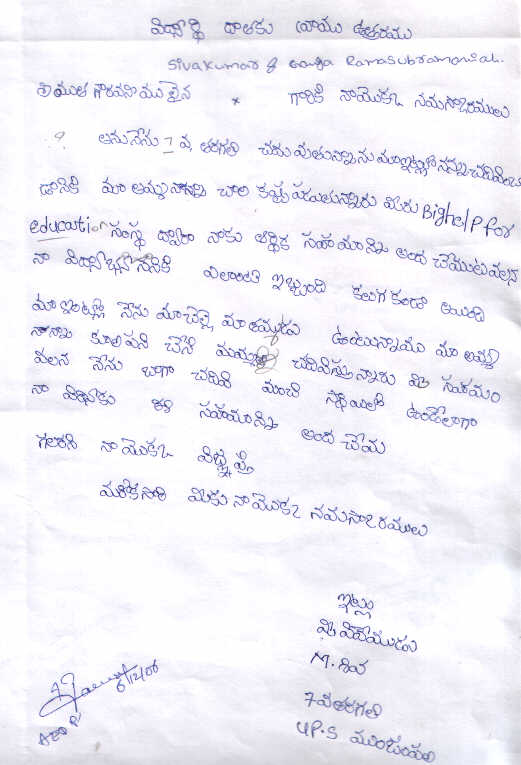 విద్యార్థి దాతకు వ్రాయు ఉత్తరము
Sivakumar & Ganga Ramasubramanian.
గౌరవనీయులైన * గారికి నామొక్క నమస్కారములు
నేను 7 వ తరగతి చదువుతున్నాను మా ఇంట్లో నన్ను
దానికి మా అమ్మ నాన్న చాల కష్ట పడుతున్నారు మీరు Bighelp for
education సంస్థ ద్వారా నాకు ఆర్థిక సహాయాన్ని అంద చేయుటవలన
నా విద్యాభ్యాసానికి ఎలాంటి ఇబ్బంది కలుగకుండా అయింది
మా ఇంట్లో నేను మాచెల్లి మాతమ్ముడు ఉంటున్నాము మా అమ్మ
నాన్న కూలిపని చేసి మమ్మల్ని చదివిస్తున్నారు మీ సహాయం
వలన నేను బాగా చదివి మంచి స్థాయిలో ఉండేలాగా
నా ఈ సహాయాన్ని అంద చేయ
గలరని నా మొక్క విజ్ఞప్తి
మరొకసారి మీకు నా మొక్క నమస్కారములు
ఇట్లు
మీ విధేయుడు
M. శివ
7వ తరగతి
U.P.S
6/12/08